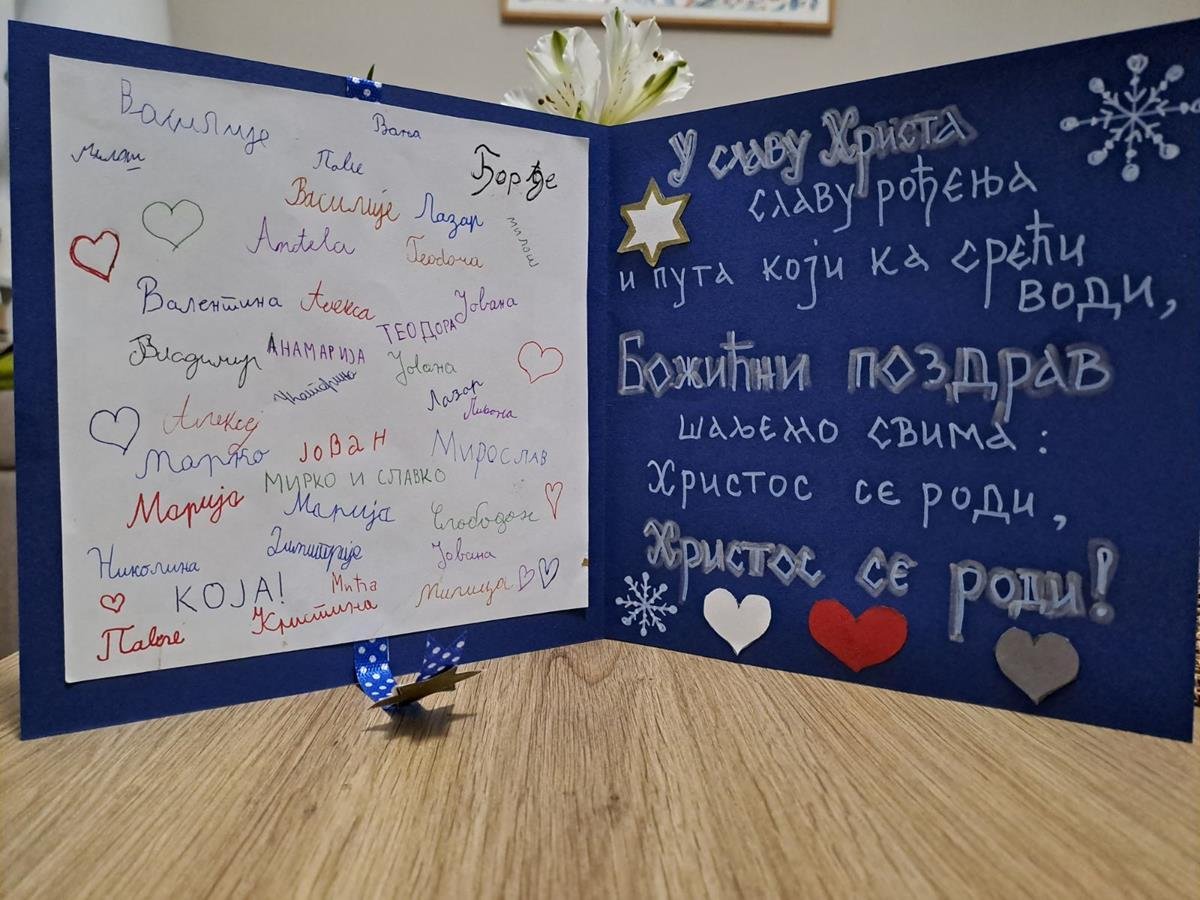 Василије
Вања
Милош
Павле
Ђорђе
Василије
Лазар
милош
Anđela
Теодора
Валентина
Алекса
Јована
ТЕОДОРА
Владимир
АНАМАРИЈА
Јована
Катарина
Лазар
Алексеј
Марко
ЈОВАН
МИРОСЛАВ
МИРКО И СЛАВКО
Марија
Марија
Слободан
Николина
Димитрије
Јована
КОЈА!
Мића
Милица
Кристина
Павле
У славу Христа
славу рођења
и пута који ка срећи
води,
Божићни поздрав
шаљемо свима:
Христос се роди,
Христос се роди!